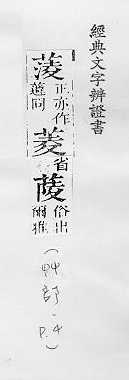 經典文字辨證書
蓤正亦作
蔆同
菱省
䔖俗出
爾雅
(艸部·P.4)